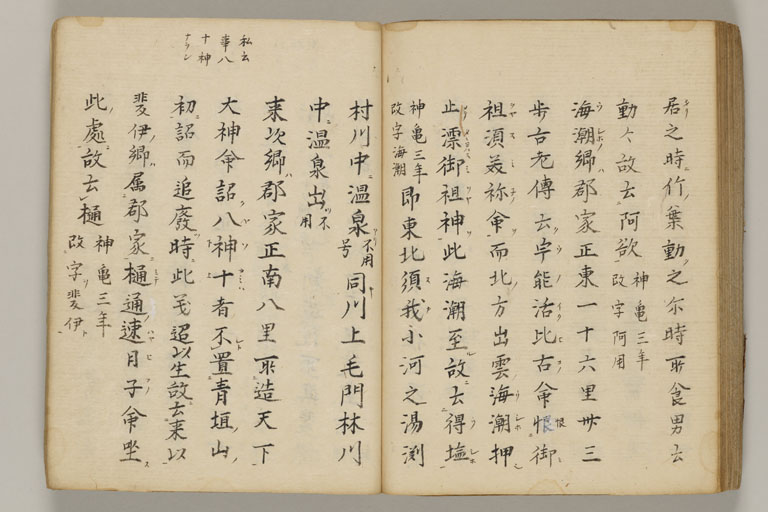 居之時竹葉動之尓時所食男云
動々故云阿欲 神亀三年 改字阿用
海潮郷郡家正東一十六里卅三
歩古老傳云宇能活比古命恨御
祖須義祢命而北方出雲海潮押
止漂御祖神此海潮至故云得塩
神亀三年 改字海潮 即東北須我小河之湯渕
村川中温泉 不用号 同川上毛門林川
中温泉出 不用
来次郷郡家正南八里所造天下
大神命詔八神十者不置青垣山
初詔而追廢時此䒾迢以生故云来以
斐伊郷属郡家樋通速日子命坐
此處故云樋 神亀三年 改字斐伊
私云
䒾八
十神
ナラン